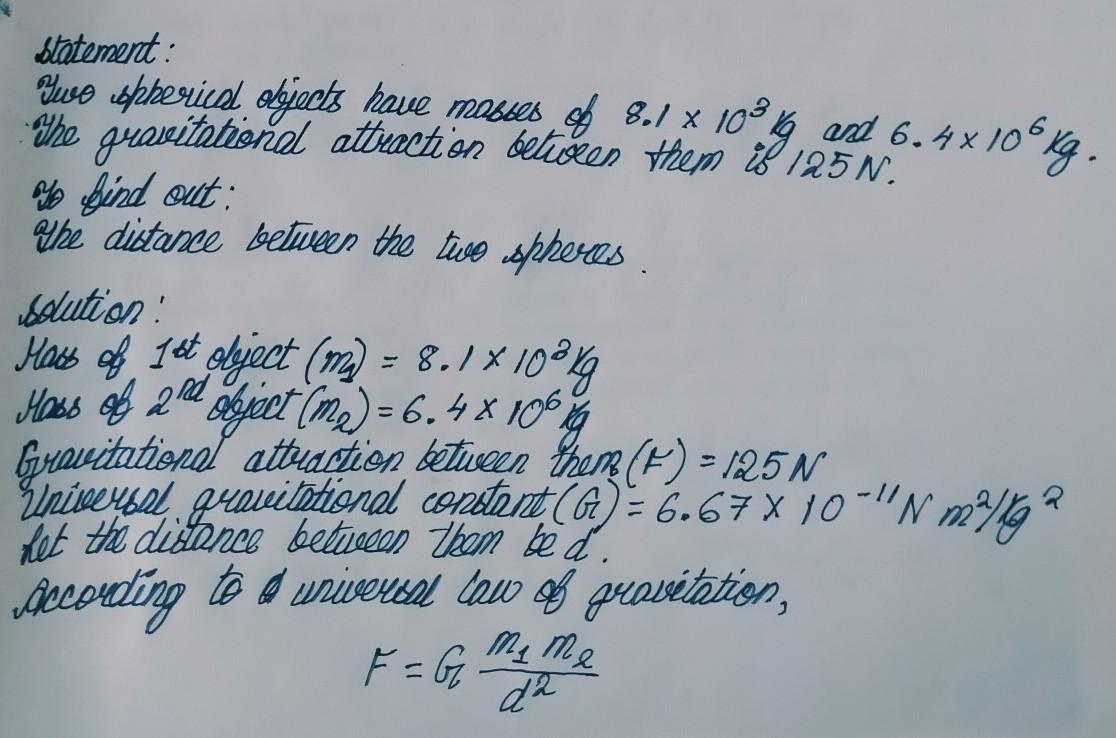 Statement:
Two spherical objects have masses of 8.1 × 10³ Kg and 6.4 × 10⁶ Kg.
The gravitational attraction between them is 125 N.
To find out:
The distance between the two spheres.
Solution:
Mass of 1st object (m₁) = 8.1 × 10³ Kg
Mass of 2nd object (m₂) = 6.4 × 10⁶ Kg
Gravitational attraction between them (F) = 125 N
Universal gravitational constant (G) = 6.67 × 10⁻¹¹ N m²/Kg²
Let the distance between them be d.
According to universal law of gravitation,
F = G m₁ m₂ / d²